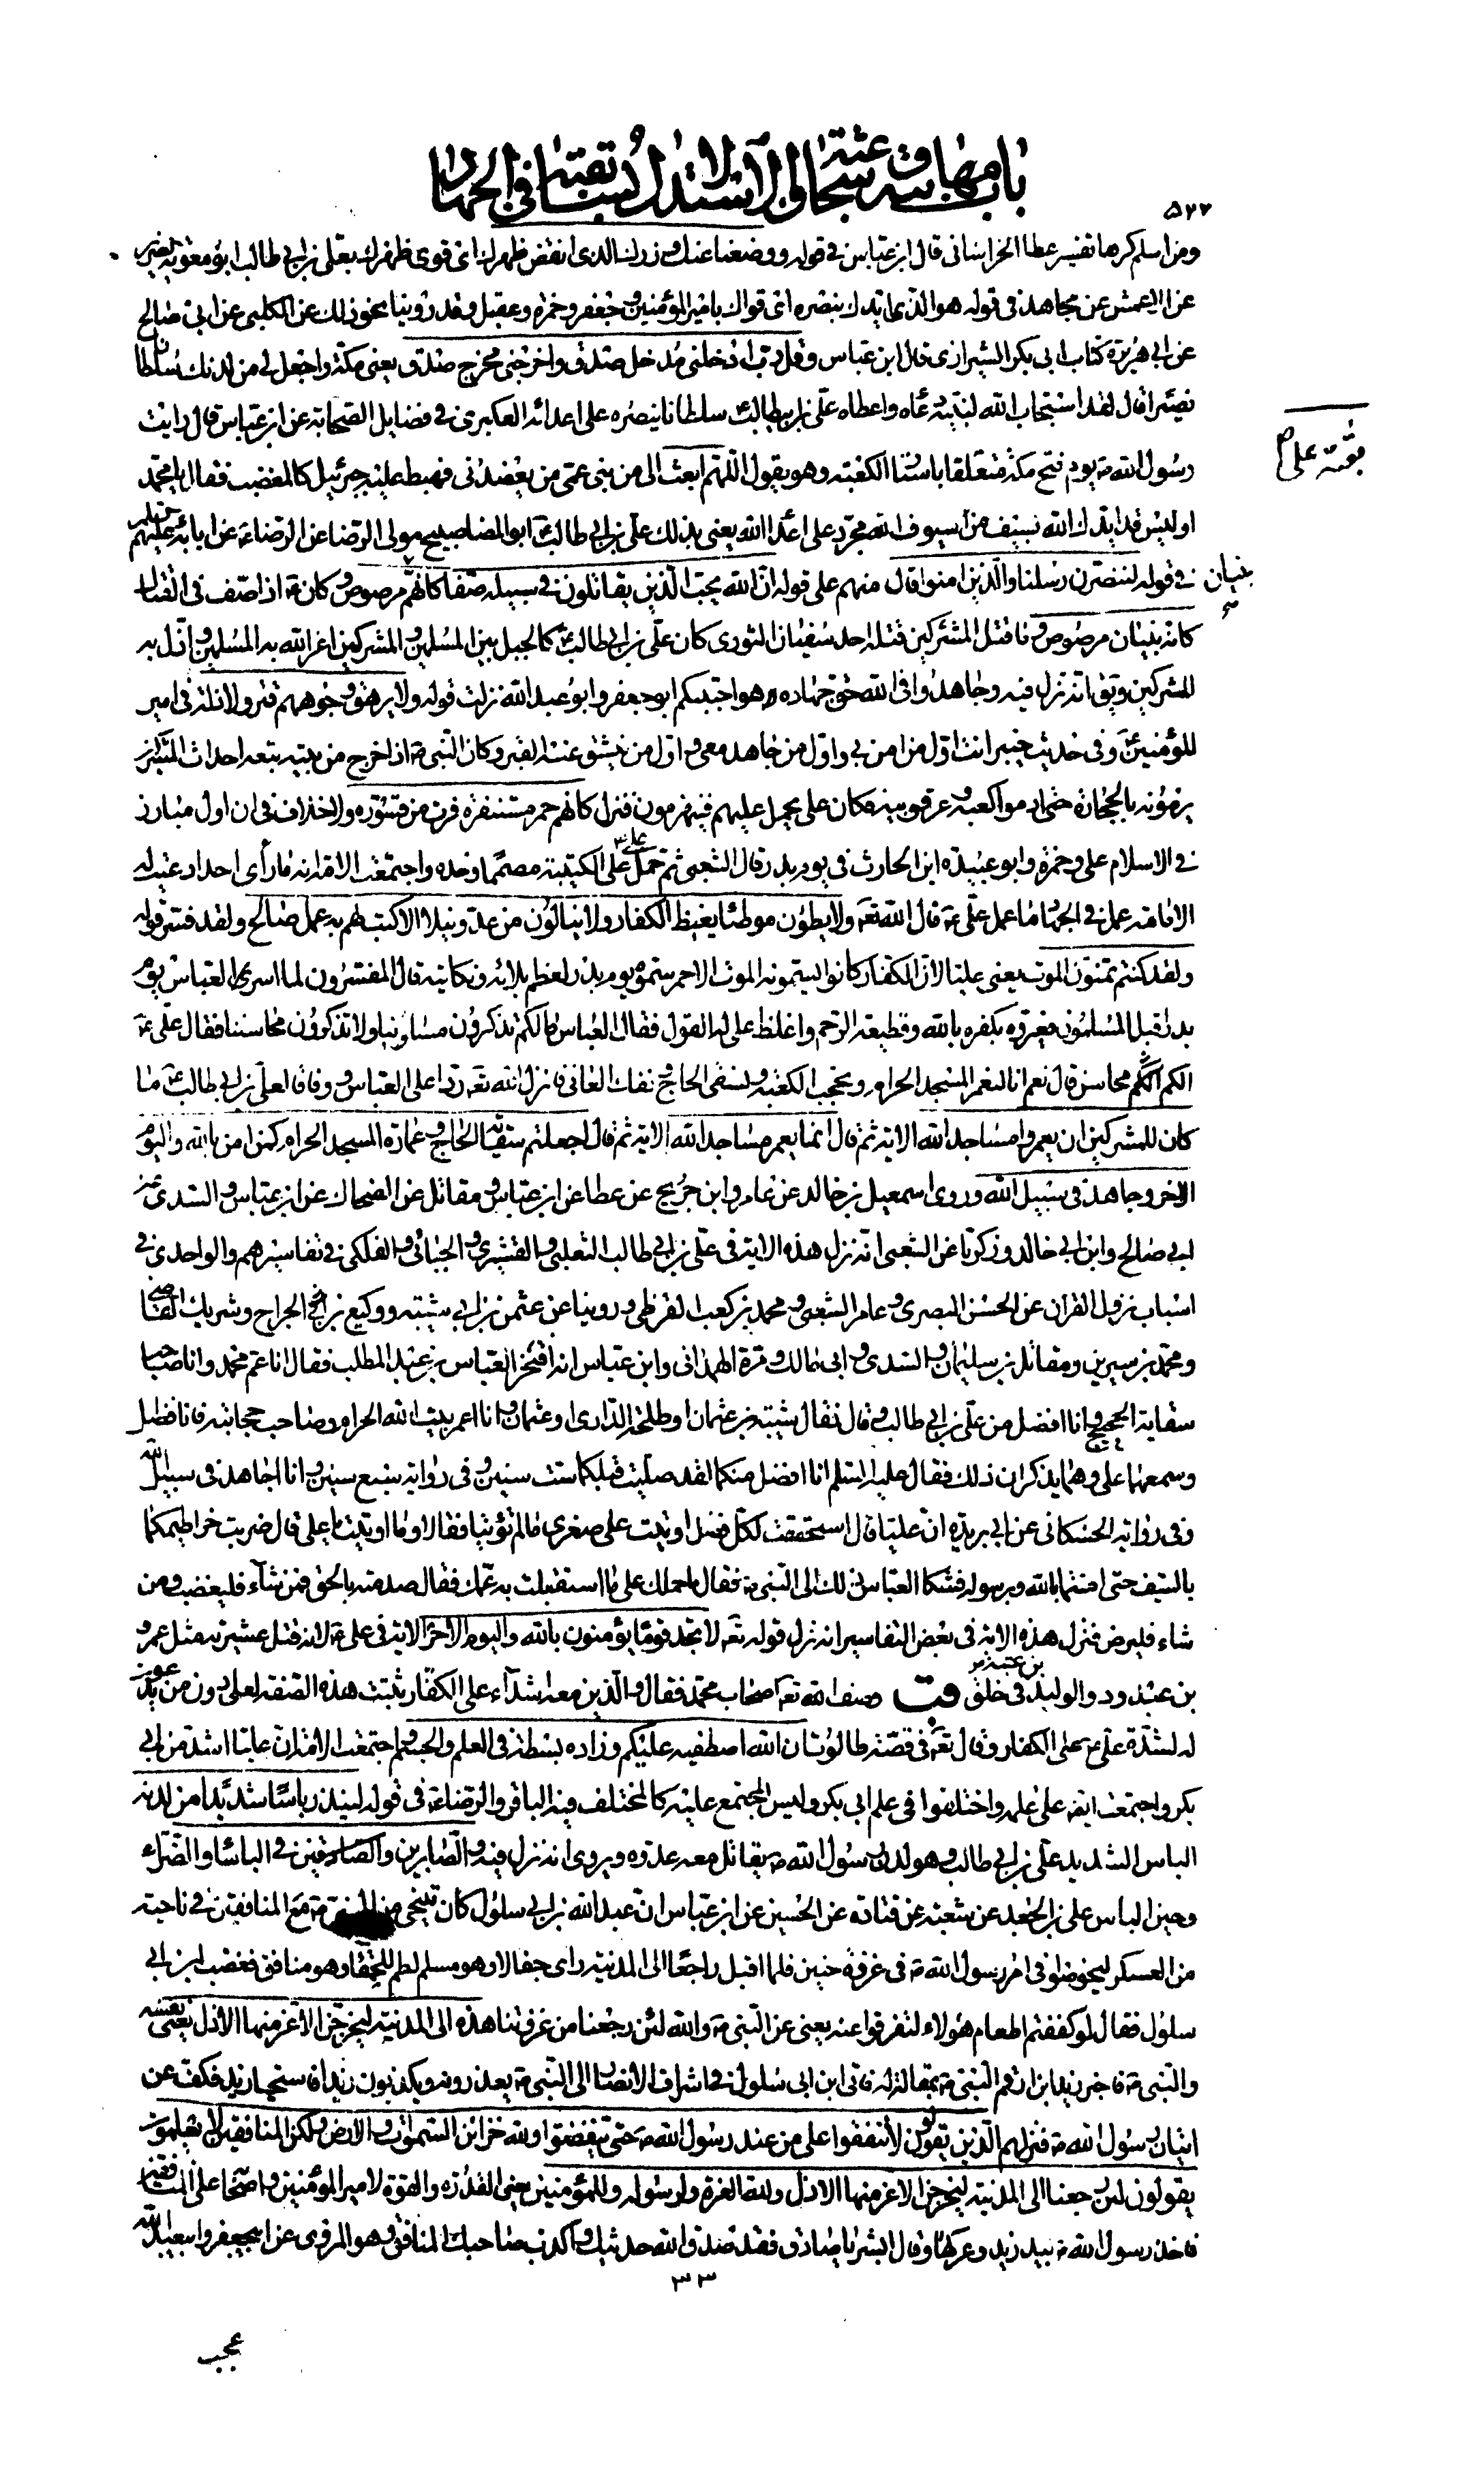 ۵۲۲
باب مسابقته في الجهاد
ومن اسلم كرها تفسير عطا الخراسانى قال ابن عباس فى قوله ووضعنا عنك وزرك الذى انقض ظهرك اى قوى ظهرك بعلى بن ابى طالب ابو معوية الضرير
عن الاعمش عن مجاهد فى قوله هو الذى ايدك بنصره اى قواك بامير المؤمنين و جعفر وحمزة وعقيل وقد روينا نحو ذلك عن الكلبى عن ابى صالح
عن ابى هريرة كتاب ابى بكر الشيرازى قال ابن عباس وقل رب ادخلنى مدخل صدق واخرجنى مخرج صدق يعنى مكة واجعل لى من لدنك سلطانا
نصيرا قال لقد استجاب الله لنبيه دعاه واعطاه على بن ابيطالب ع سلطانا ينصره على اعدائه العكبرى فى فضايل الصحابة عن ابن عباس قال رايت
رسول الله ص يوم فتح مكة متعلقا باستار الكعبة وهو يقول اللهم ابعث الى من بنى عمى من يعضدنى فهبط عليه جبرئيل كالمغضب فقال يا محمد
اوليس قد ايدك الله بسيف من سيوف الله مجرد على اعداء الله يعنى بذلك على بن ابى طالب ع ابو المضا صبيح مولى الرضا عن الرضا ع عن ابائه عليهم
فى قوله لننصرن رسلنا والذين امنوا قال منهم على قوله ان الله يحب الذين يقاتلون فى سبيله صفا كانهم مرصوص كان ع اذا صف فى القتال
بنيان
كانه بنيان مرصوص و ما قتل المشركين قتله احد سفيان الثورى كان على بن ابى طالب ع كالجبل بين المسلمين و المشركين اعز الله به المسلمين و اذل به
المشركين ويق انه نزل فيه وجاهدوا فى الله حق جهاده هو اجتبيكم ابو جعفر وابو عبد الله نزلت قوله ولا يرهق وجوههم قتر ولا ذلة فى امير
المؤمنين ع وفى حديث خيبر انت اول من امن بى واول من جاهد معى و اول من ينشق عنه القبر وكان النبى ص اذا خرج من بيته تبعه احداث المشركين
يرمونه بالحجارة حتى ادموا كعبه و عرقوبيه فكان على يحمل عليهم فينهزمون فنزل كانهم حمر مستنفرة فرت من قسورة ولا خلاف فى ان اول مبارز
فى الاسلام على وحمزة وابو عبيدة ابن الحارث فى يوم بدر قال الشعبى ثم حمل على على الكتيبة مصمما وحده واجتمعت الامة انه ما رأى احد ادعيت له
الامامة عمل فى الجهاد ما عمل على ع قال الله تعه ولا يطؤن موطئا يغيظ الكفار ولا ينالون من عدو نيلا الا كتب لهم به عمل صالح ولقد فسر قوله
ولقد كنتم تمنون الموت يعنى عليا لان الكفار كانوا يسمونه الموت الاحمر سموه يوم بدر لعظم بلائه ونكايته قال المفسرون لما اسر العباس يوم
بدر اقبل المسلمون فعيروه بكفره بالله وقطيعة الرحم واغلظ على له القول فقال العباس ما لكم تذكرون مساوينا ولا تذكرون محاسننا فقال على ع
الكم محاسن قال نعم انا لنعمر المسجد الحرام و نحجب الكعبة و نسقى الحاج و نفك العانى فانزل الله تعه ردا على العباس و وفاقا لعلى بن ابى طالب ع ما
كان للمشركين ان يعمروا مساجد الله الاية ثم قال انما يعمر مساجد الله الاية ثم قال اجعلتم سقاية الحاج و عمارة المسجد الحرام كمن امن بالله واليوم
الاخر وجاهد فى سبيل الله وروى اسمعيل بن خالد عن عامر وابن جريج عن عطا عن ابن عباس و مقاتل عن الضحاك عن ابن عباس و السدى عن
ابى صالح وابن ابى خالد وزكريا عن الشعبى انه نزل هذه الاية فى على بن ابى طالب الثعلبى و القشيرى و الجبائى و الفلكى فى تفاسيرهم والواحدى فى
اسباب نزول القران عن الحسن البصرى و عامر الشعبى و محمد بن كعب القرظى وروينا عن عثمن بن ابى شيبة ووكيع بن الجراح وشريك القاضى
ومحمد بن سيرين ومقاتل بن سليمان و السدى و ابى مالك و مرة الهمدانى وابن عباس انه افتخر العباس بن عبد المطلب فقال انا عم محمد وانا صاحب
سقاية الحجيج و انا افضل من على بن ابى طالب قال فقال شيبة بن عثمان او طلحة الدارى او عثمان و انا اعمر بيت الله الحرام وصاحب حجابته فانا افضل
وسمعها على وهما يذكران ذلك فقال عليه السلم انا افضل منكما لقد صليت قبلكما ست سنين و فى رواية سبع سنين و انا اجاهد فى سبيل الله
وفى رواية الحسكانى عن ابى بريدة ان عليا قال استحققت لكل فضل اوتيت على صغرى ما لم تؤتيا فقالا وما اوتيت يا على قال ضربت خراطيمكما
بالسيف حتى امنتما بالله وبرسوله فشكا العباس ذلك الى النبى ص فقال ما حملك على ما استقبلت به عمك فقال صدمته بالحق فمن شآء فليغضب و من
شاء فليرض فنزل هذه الاية فى بعض التفاسير انه نزل قوله تعه لا تجد قوما يؤمنون بالله واليوم الاخر الاية فى على ع لانه قتل عشيرته مثل عمرو
بن عبد ود والوليد بن عتبة فى خلق وصف الله تعه اصحاب محمد فقال و الذين معه اشدآء على الكفار ثبتت هذه الصفة لعلى دون من يدعون
له لشدة على ع على الكفار وقال تعه فى قصة طالوت ان الله اصطفيه عليكم وزاده بسطة فى العلم والجسم اجتمعت الامة ان عليا اشد من ابى
بكر واجتمعت ايضه على علمه واختلفوا فى علم ابى بكر وليس المجتمع عليه كالمختلف فيه الباقر والرضا ع فى قوله لينذر باسا شديدا من لدنه
الباس الشديد على بن ابى طالب و هو لدن رسول الله ص يقاتل معه عدوه ويروى انه نزل فيه و الصابرين فى الباساء والضراء
وحين الباس على بن الجعد عن شعبة عن قتادة عن الحسين عن ابن عباس ان عبد الله بن ابى سلول كان يتنحى من النبى ص مع المنافقين فى ناحية
من العسكر ليخوضوا فى امر رسول الله ص فى غزوة حنين فلما اقبل راجعا الى المدينة راى جفالا وهو مسلم لطم للحمقا وهو منافق فغضب ابن ابى
سلول فقال لو كففتم اطعام هؤلاء لتفرقوا عنه يعنى عن النبى ص والله لئن رجعنا من غزوتنا هذه الى المدينة ليخرجن الاعز منها الاذل يعنى نفسه
والنبى ص فاخبر زيد ابن ارقم النبى ص بمقالته فاتى ابن ابى سلول فى اشراف الانصار الى النبى ص يعذرونه ويكذبون زيدا فاستحيا زيد فكف عن
اتيان رسول الله ص فنزل هم الذين يقولون لا تنفقوا على من عند رسول الله ص حتى ينفضوا ولله خزائن السموات و الارض و لكن المنافقين لا يعلمون
يقولون لئن رجعنا الى المدينة ليخرجن الاعز منها الاذل ولله العزة ولرسوله وللمؤمنين يعنى القدرة والقوة لامير المؤمنين و اصحابه على المنافقين
فاخذ رسول الله ص بيد زيد وعركها وقال ابشر يا صادق فقد صدق الله حديثك و اكذب صاحبك المنافق و هو المروى عن ابى جعفر وابى عبد الله
۳۳